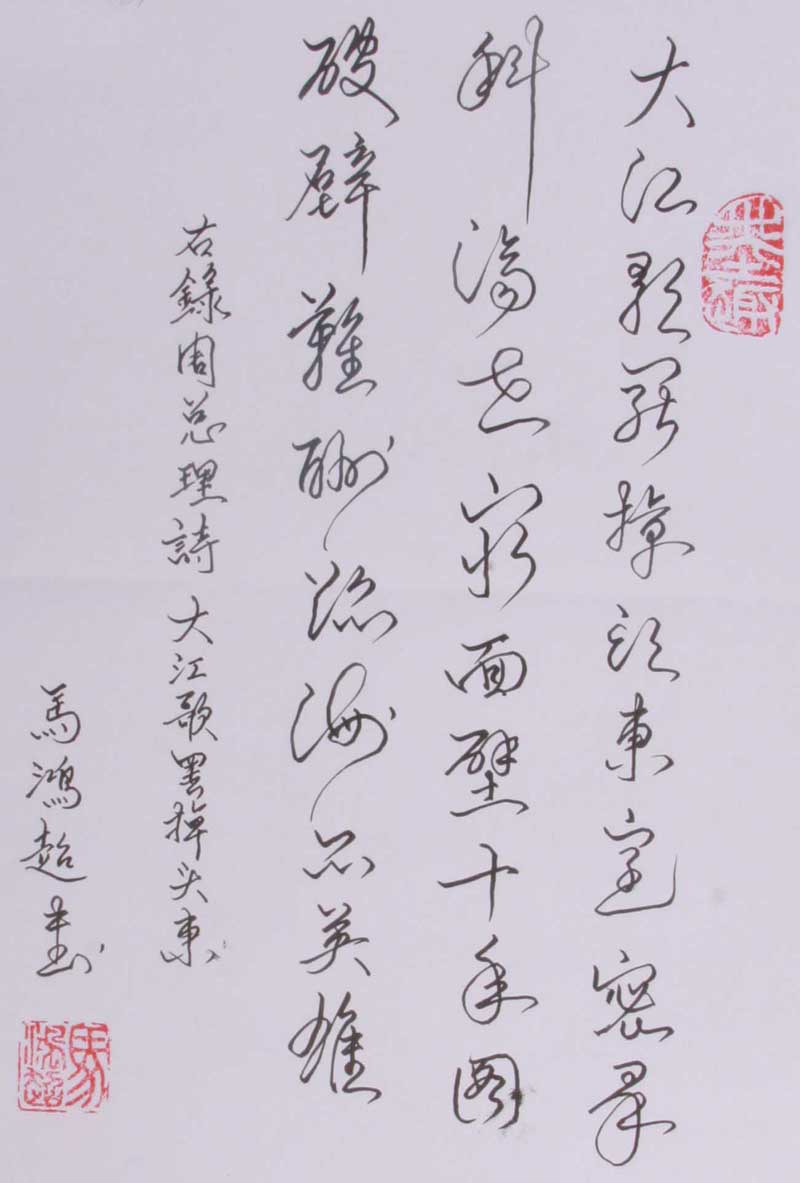 大江歌罷掉頭東邃密羣
科濟世窮面壁十年图
破壁難酬蹈海亦英雄
右錄周总理詩 大江歌罢掉头東
馬鴻超書
馬鴻超